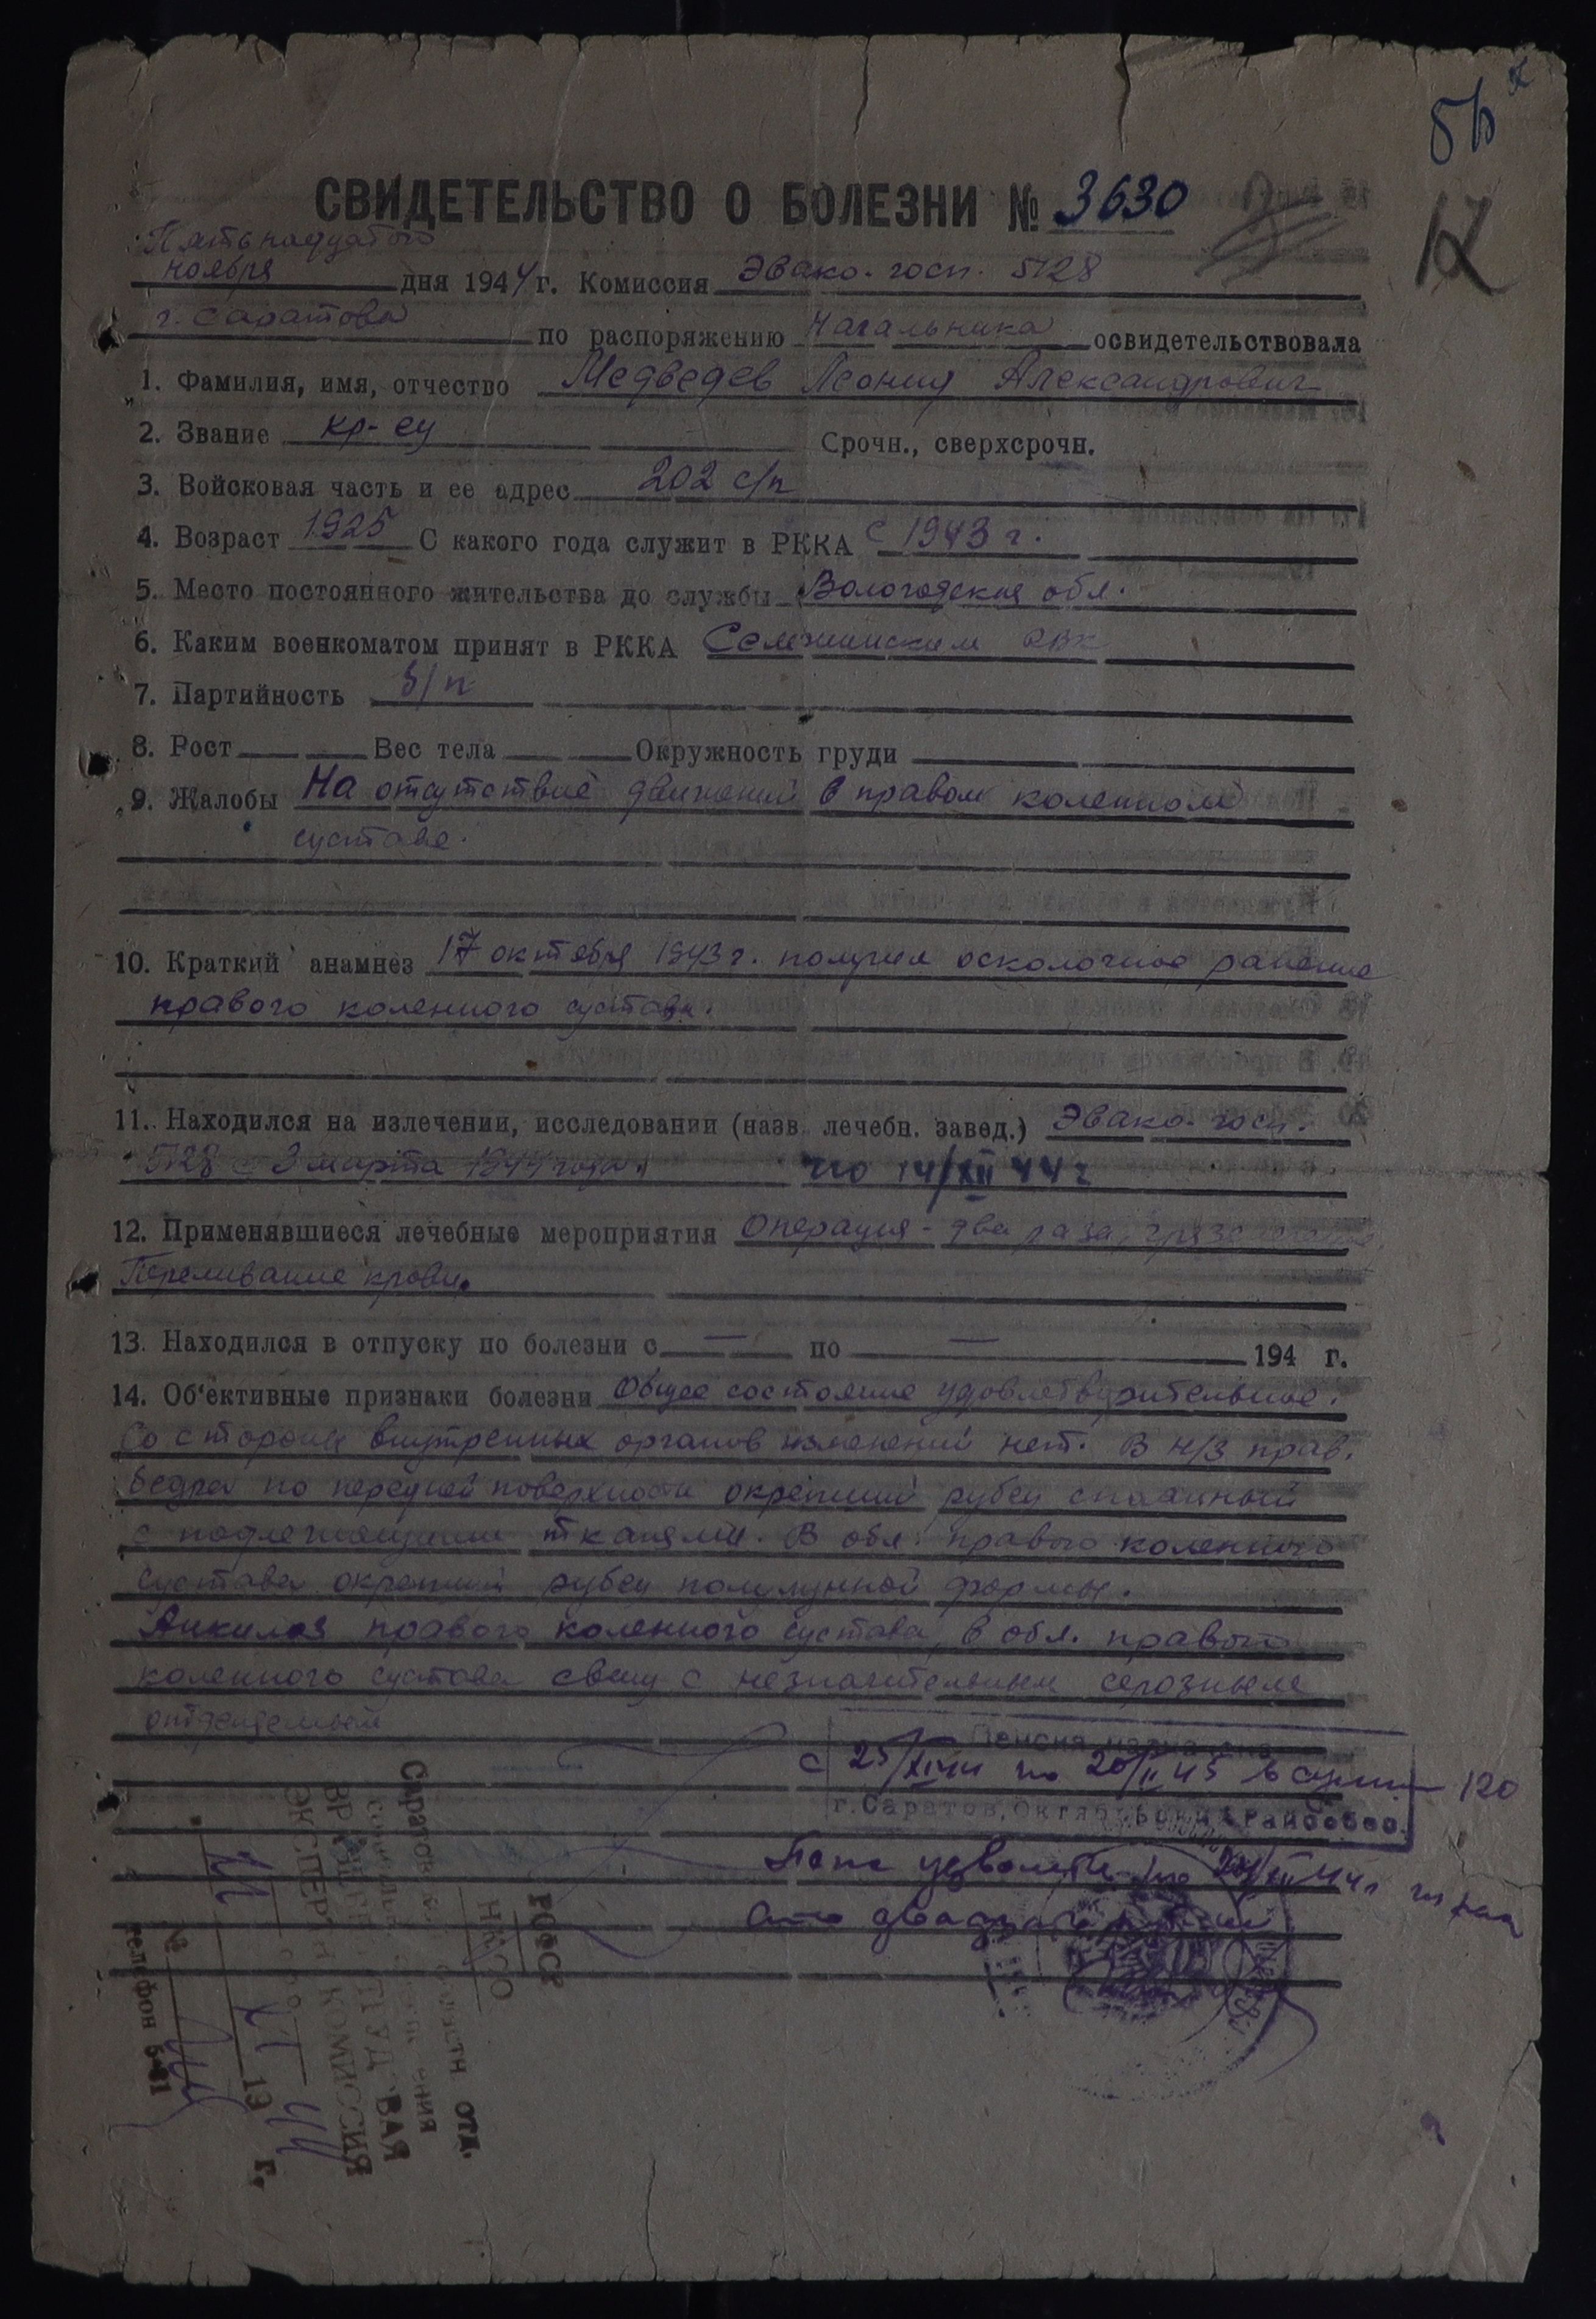 СВИДЕТЕЛЬСТВО О БОЛЕЗНИ № 3630
12
Пятнадцатого
ноября дня 1944 г. Комиссия Эвако. госп. 5128
г. Саратова по распоряжению Начальника освидетельствовала
1. Фамилия, имя, отчество Медведев Леонид Александрович
2. Звание кр-ец Срочн., сверхсрочн.
3. Войсковая часть и ее адрес 202 с/п
4. Возраст 1925 С какого года служит в РККА с 1943 г.
5. Место постоянного жительства до службы Вологодская обл.
6. Каким военкоматом принят в РККА РВК
7. Партийность б/п
8. Рост Вес тела Окружность груди
9. Жалобы На отсутствие движений в правом коленном
суставе.
10. Краткий анамнез 17 октября 1943 г. получил осколочное ранение
правого коленного сустава.
11. Находился на излечении, исследовании (назв. лечебн. завед.) Эвако. госп.
5128 с 3 марта 1944 года по 14/XII 44 г
12. Применявшиеся лечебные мероприятия Операция - два раза,
Переливание крови.
13. Находился в отпуску по болезни с — по — 194 г.
14. Об'ективные признаки болезни Общее состояние удовлетворительное.
Со стороны внутренних органов изменений нет. В н/3 прав.
бедра по передней поверхности окрепший рубец спаянный
с подлежащими тканями. В обл. правого коленного
сустава окрепший рубец полулунной формы.
Анкилоз правого коленного сустава, в обл. правого
коленного сустава свищ с незначительным серозным
отделяемым
Пенсия назначена
с 25/XI 44 по 20/II 45 в сумме 120
г. Саратов, Октябрьский Райсобес.
сто двадцать
РСФСР
НКСО
ОТД.
ВРАЧЕБНО ТРУДОВАЯ
ЭКСПЕРТН КОМИССИЯ
19 г.
№
телефон 5-81